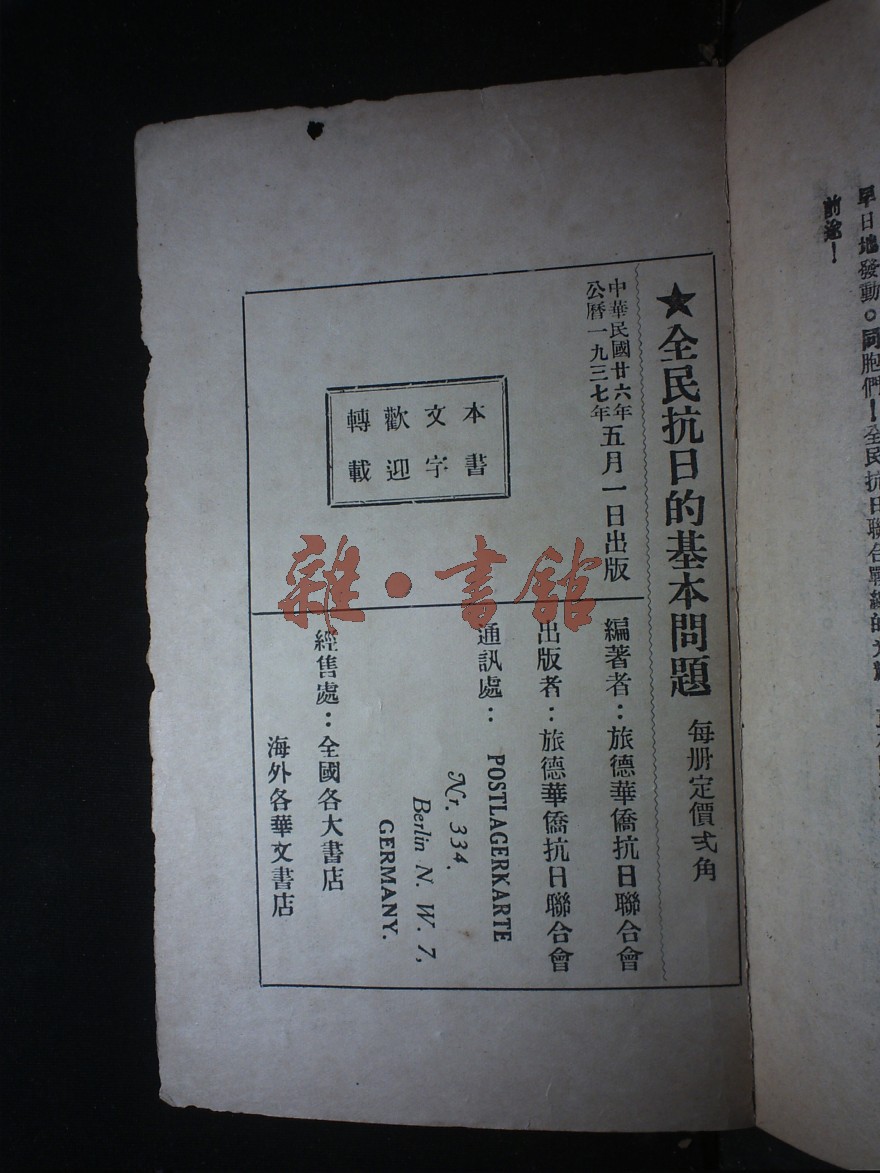 早日地發動。同胞們！全民抗日聯合戰線的
前途！
★全民抗日的基本問題 每册定價弍角
中華民國廿六年
公曆一九三七年
五月一日出版
本書
文字
歡迎
轉載
編著者：旅德華僑抗日聯合會
出版者：旅德華僑抗日聯合會
通訊處：POSTLAGERKARTE
Nr. 334.
Berlin N. W. 7,
GERMANY.
經售處：全國各大書店
海外各華文書店
雜·書館